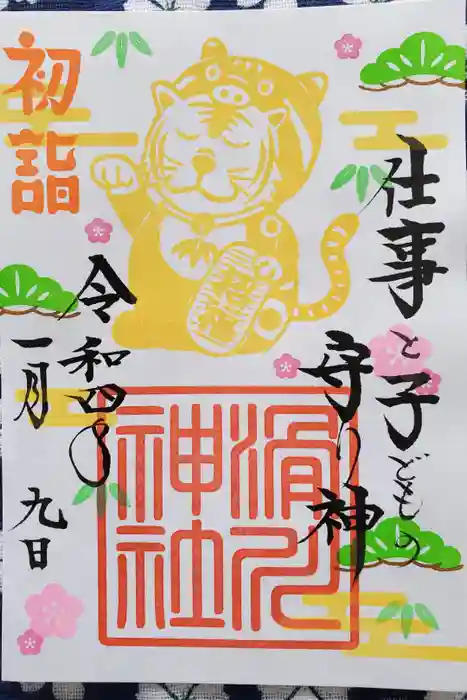 仕事と子どもの
守り神
滑川
神社
令和四年
一月九日
初詣